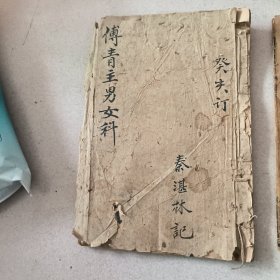 傅青主男女科
癸亥订
秦湛林記